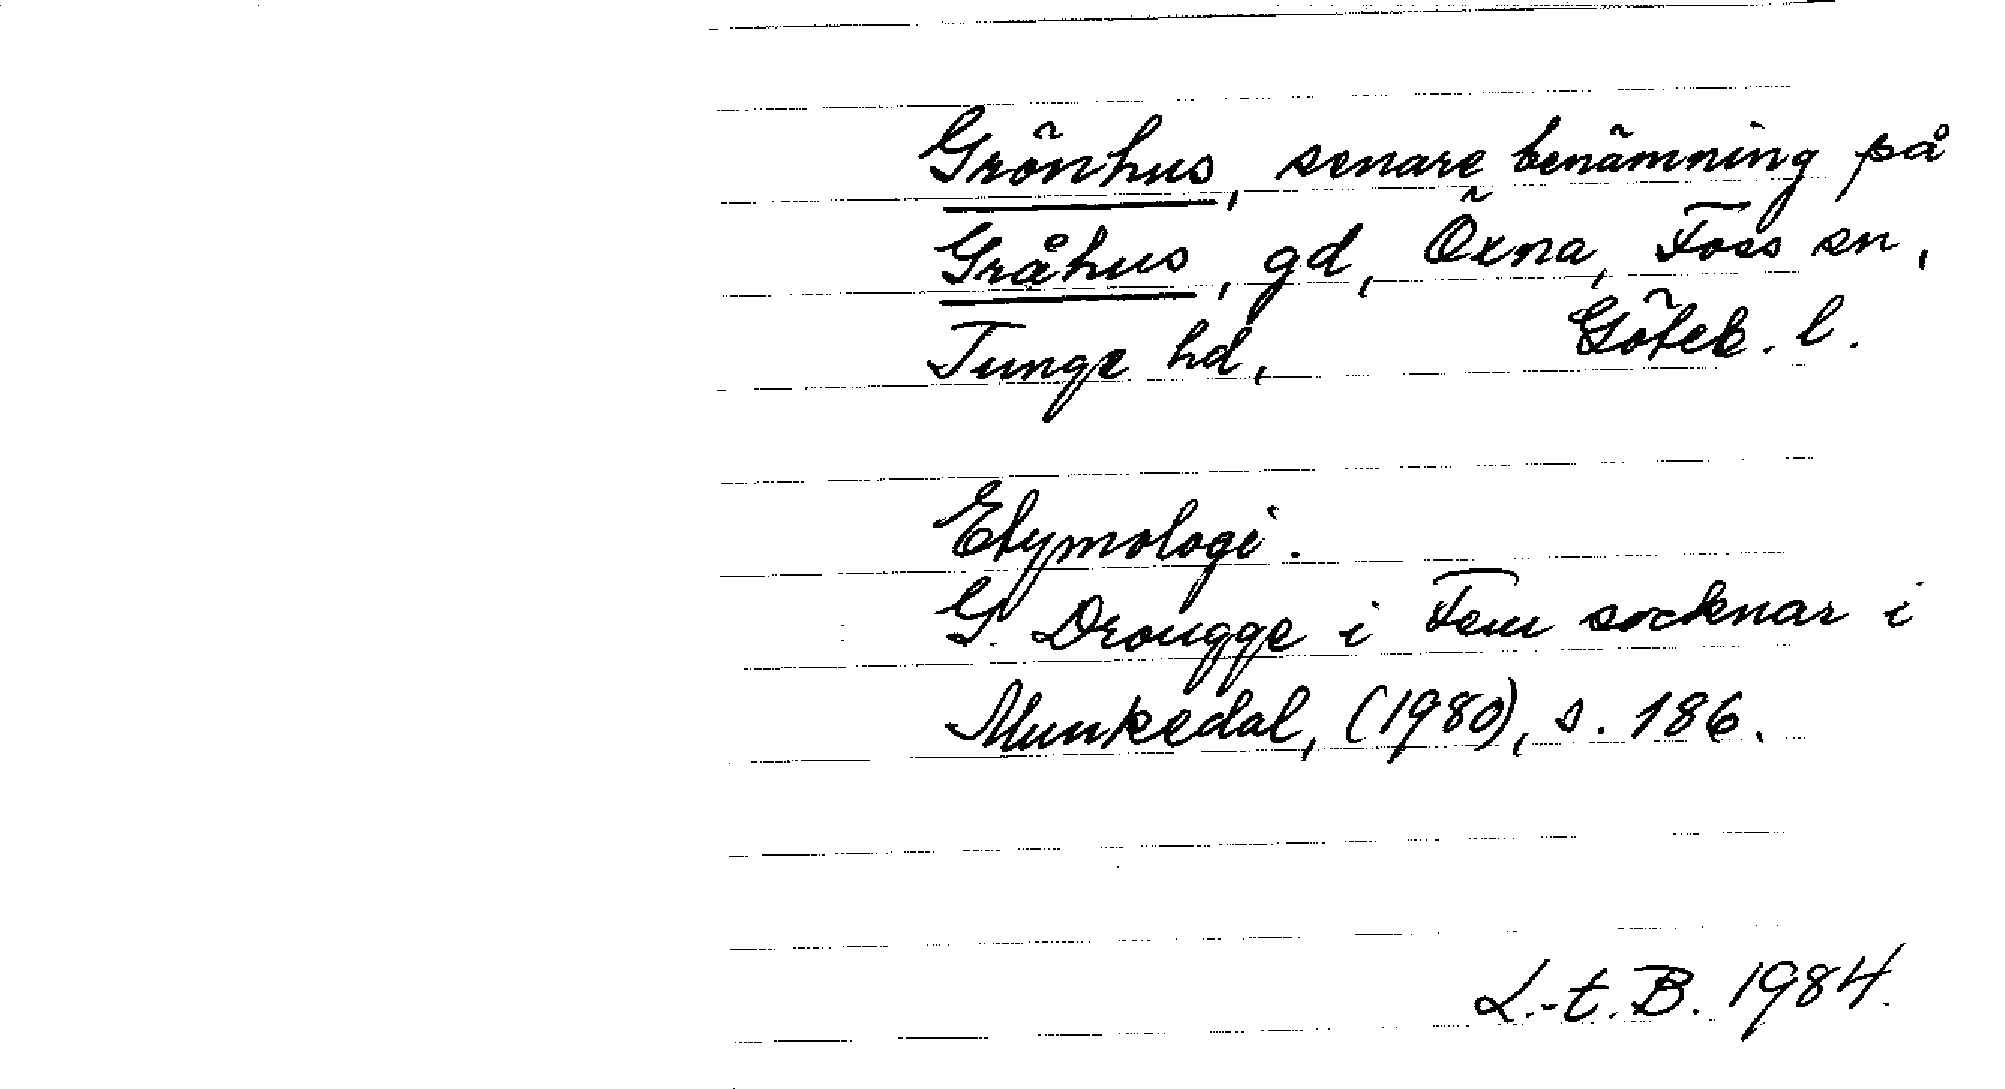 Grönhus, senare benämning på
Gråhus, gd, Öxna, Foss sn,
Tunge hd, Göteb. l.
Etymologi.
G. Drougge i Fem socknar i
Munkedal, (1980), s. 186.
L.-t. B. 1984.